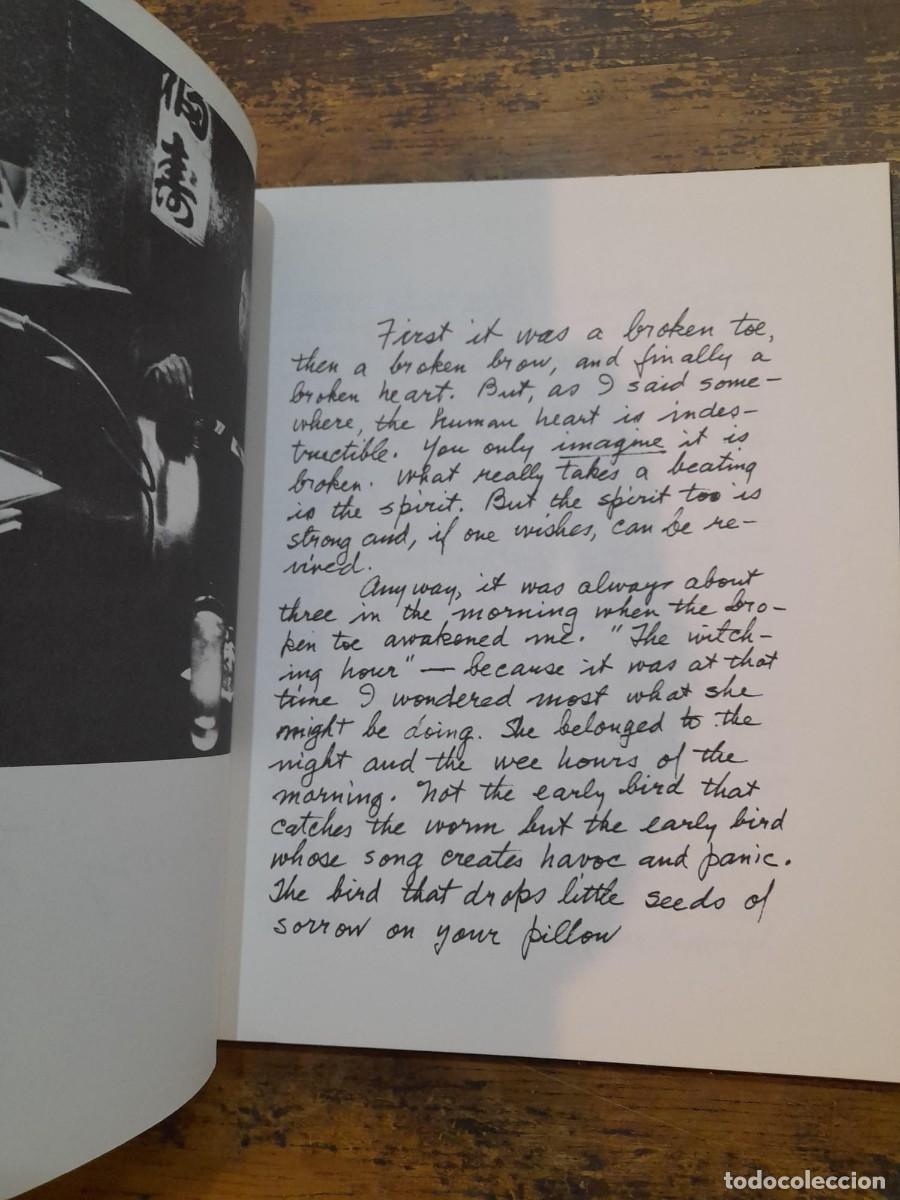 壽
First it was a broken toe,
then a broken brow, and finally a
broken heart. But, as I said some-
where, the human heart is indes-
tructible. You only imagine it is
broken. What really takes a beating
is the spirit. But the spirit too is
strong and, if one wishes, can be re-
vived.
Anyway, it was always about
three in the morning when the bro-
ken toe awakened me. "The witch-
ing hour" — because it was at that
time I wondered most what she
might be doing. She belonged to the
night and the wee hours of the
morning. Not the early bird that
catches the worm but the early bird
whose song creates havoc and panic.
The bird that drops little seeds of
sorrow on your pillow
todocoleccion